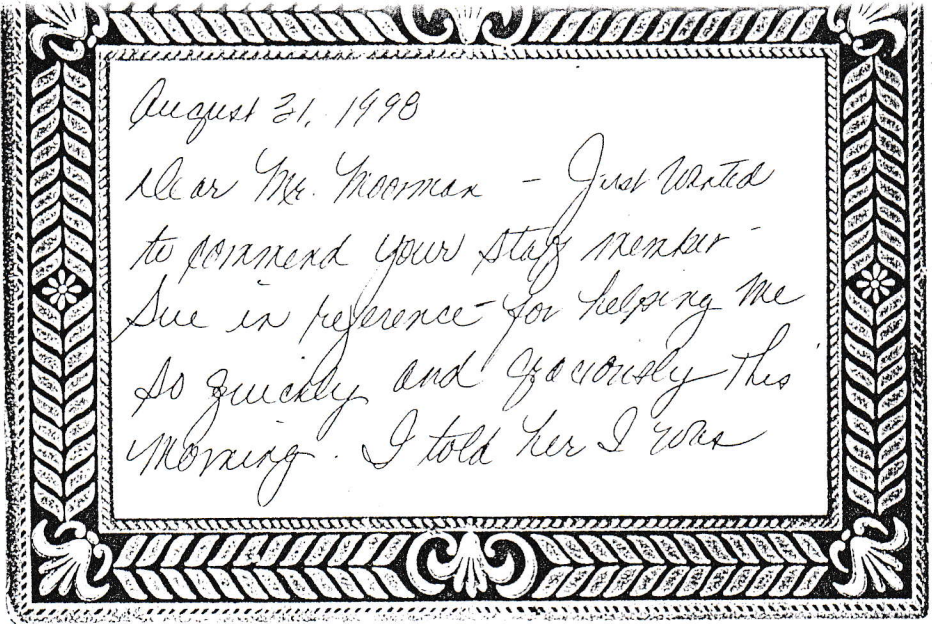 August 31, 1998
Dear Mr. Moorman - Just wanted
to commend your staff member -
Sue in reference - for helping me
so quickly and graciously this
morning. I told her I was